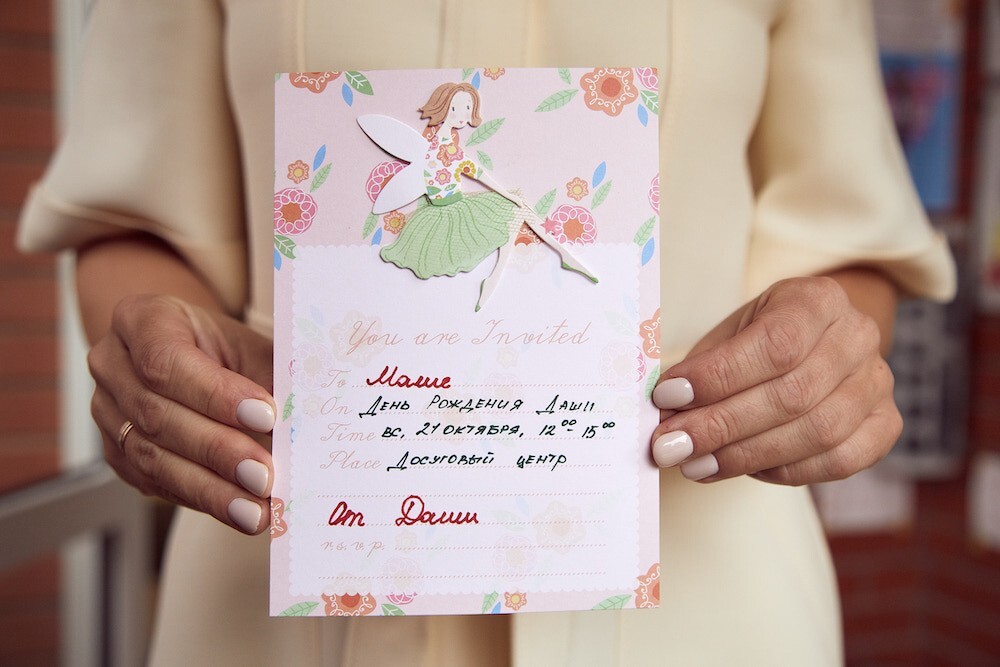 You are Invited
To Маше
On День Рождения Даши
Time вс, 21 октября, 12⁰⁰-15⁰⁰
Place Досуговый центр
От Даши
r.s.v.p.